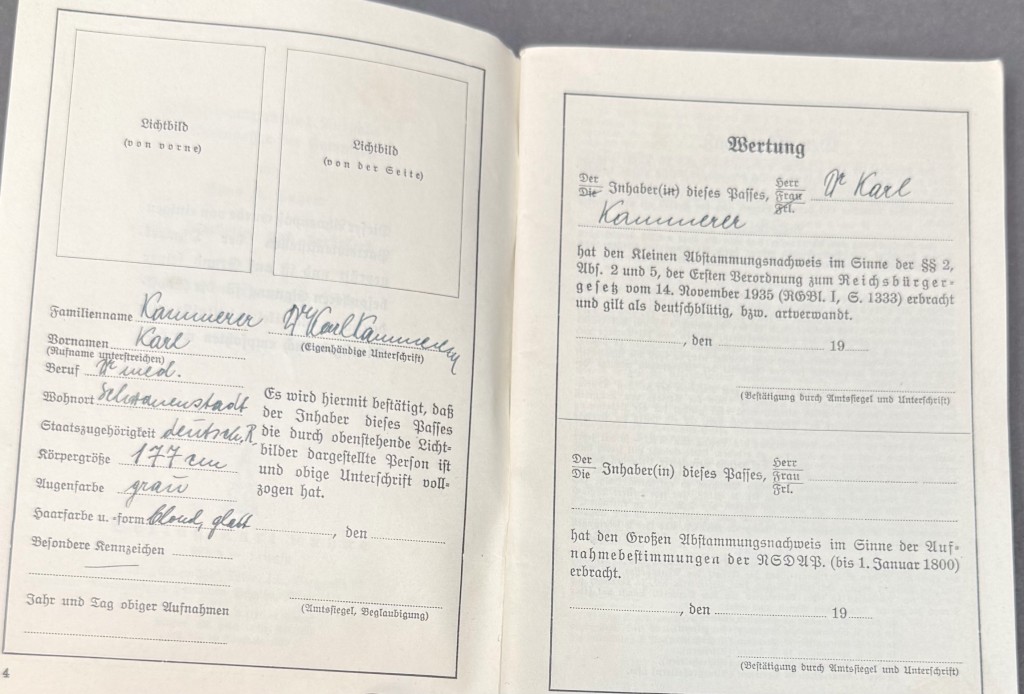 Lichtbild
(von vorne)
Lichtbild
(von der Seite)
Familienname Kammerer Dr Karl Kammerer
(Eigenhändige Unterschrift)
Vornamen Karl
(Rufname unterstreichen)
Beruf Dr med.
Wohnort Schwanenstadt
Staatszugehörigkeit deutsch, R
Körpergröße 177 cm
Augenfarbe grau
Haarfarbe u. -form blond, glatt
Besondere Kennzeichen
Jahr und Tag obiger Aufnahmen
Es wird hiermit bestätigt, daß
der Inhaber dieses Passes
die durch obenstehende Licht-
bilder dargestellte Person ist
und obige Unterschrift voll-
zogen hat.
, den
(Amtssiegel, Beglaubigung)
4
Wertung
Der
Die Inhaber(in) dieses Passes, Herr
Frau
Frl. Dr Karl
Kammerer
hat den Kleinen Abstammungsnachweis im Sinne der §§ 2,
Abs. 2 und 5, der Ersten Verordnung zum Reichsbürger-
gesetz vom 14. November 1935 (RGBl. I, S. 1333) erbracht
und gilt als deutschblütig, bzw. artverwandt.
, den 19
(Bestätigung durch Amtssiegel und Unterschrift)
Der
Die Inhaber(in) dieses Passes, Herr
Frau
Frl.
hat den Großen Abstammungsnachweis im Sinne der Auf-
nahmebestimmungen der NSDAP. (bis 1. Januar 1800)
erbracht.
, den 19
(Bestätigung durch Amtssiegel und Unterschrift)